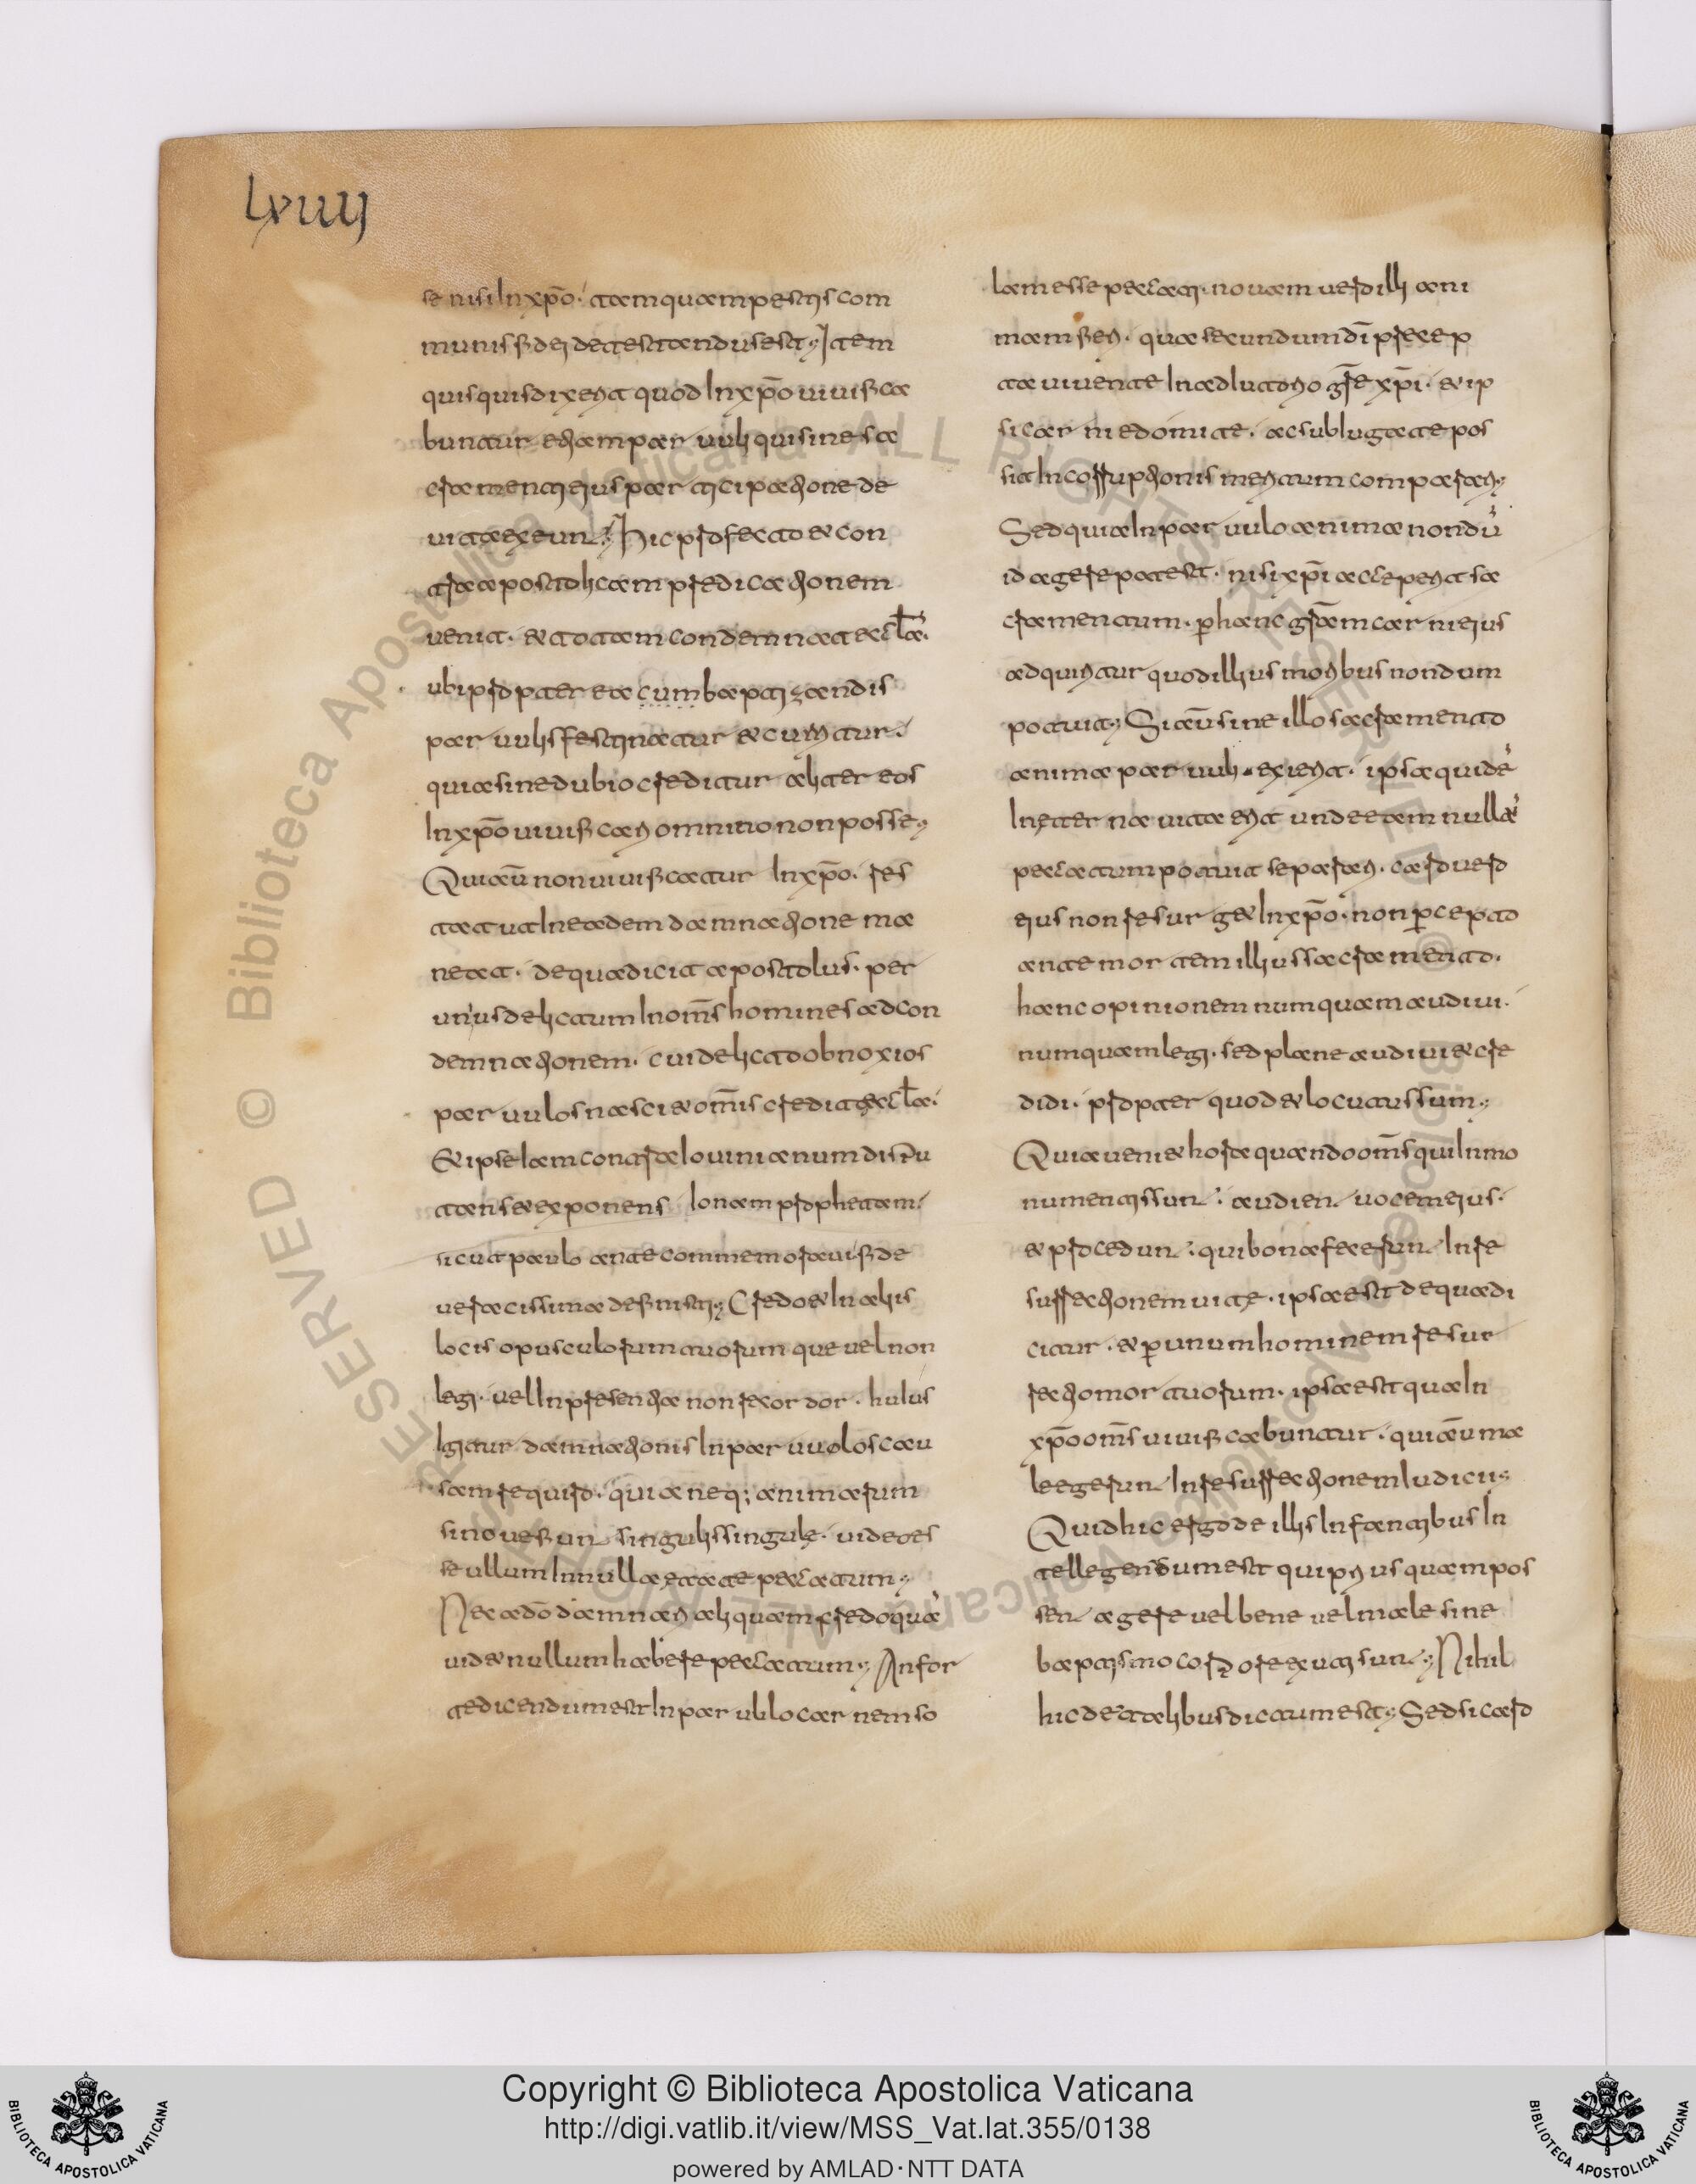 lxuiiij
se nisi in xp̄o. tamquam pestis com
munis fidei detestandus est; Item
quisquis dixerit quod in xp̄o uiuifica
buntur etiam paruuli qui sine sa
cramenti eius participatione de
uita exeunt; Hic profecto & con
tra apostolicam predicationem
uenit. & totam condemnat eccłam.
ubi propterea cum baptizandis
paruulis festinatur & curritur.
quia sine dubio creditur aliter eos
in xp̄o uiuificari omnino non posse;
Quia aū non uiuificatur in xp̄o. res
tat ut in eadem damnatione ma
neat. de qua dicit apostolus. per
unius delictum in om̄s homines ad con
demnationem. cui delicto obnoxios
paruulos nasci & om̄is credit eccła.
& ipse iam contra iouinianum dispu
tans & exponens ionam prophetam.
sicut paulo ante commemoraui fide
ueracissima definisti; Credo & in aliis
locis opusculorum tuorum que uel non
legi. uel in presentia non recordor. huius
igitur damnationis in paruulos cau
sam requiro. quia neq; animarum
si noue fiunt singulis singule. uideo es
se ullum in illa etate peccatum;
Nec a dō damnari aliquam credo quam
uid& nullum habere peccatum; An for
te dicendum est in paruulo carnem so
lam esse peccati. nouam uero illi ani
mam fieri. qua secundum dī precep
ta uiuente in adiutorio gr̄e xp̄i. & ip
si carni edomite. ac subiugate pos
sit incorruptionis meritum comparari;
Sed quia in paruulo anima nondū
id agere potest. nisi xp̄i acceperit sa
cramentum. p hanc gr̄am carni eius
adquiritur quod illius moribus nondum
potuit; Si aū sine illo sacramento
anima paruuli exierit. ipsa quidē
in eterna uita erit unde eam nullū
peccatum potuit separari. caro uero
eius non resurg& in xp̄o. non pcepto
ante mortem illius sacramento.
hanc opinionem numquam audiui.
numquam legi. sed plane audiui & cre
didi. propter quod & locutus sum;
Quia ueni& hora quando om̄s qui in mo
numentis sunt. audient uocem eius.
& procedunt. qui bona fecerunt in re
surrectionem uite. ipsa est de qua di
citur. & p unum hominem resur
rectio mortuorum. ipsa est qua in
xp̄o om̄s uiuificabuntur. qui aū ma
le egerunt in resurrectionem iudicii;
Quid hic ergo de illis infantibus in
tellegendum est qui prius quam pos
sent agere uel bene uel male sine
baptismo corpore exuti sunt; Nihil
hic de talibus dictum est; Sed si caro
Copyright © Biblioteca Apostolica Vaticana
http://digi.vatlib.it/view/MSS_Vat.lat.355/0138
powered by AMLAD·NTT DATA